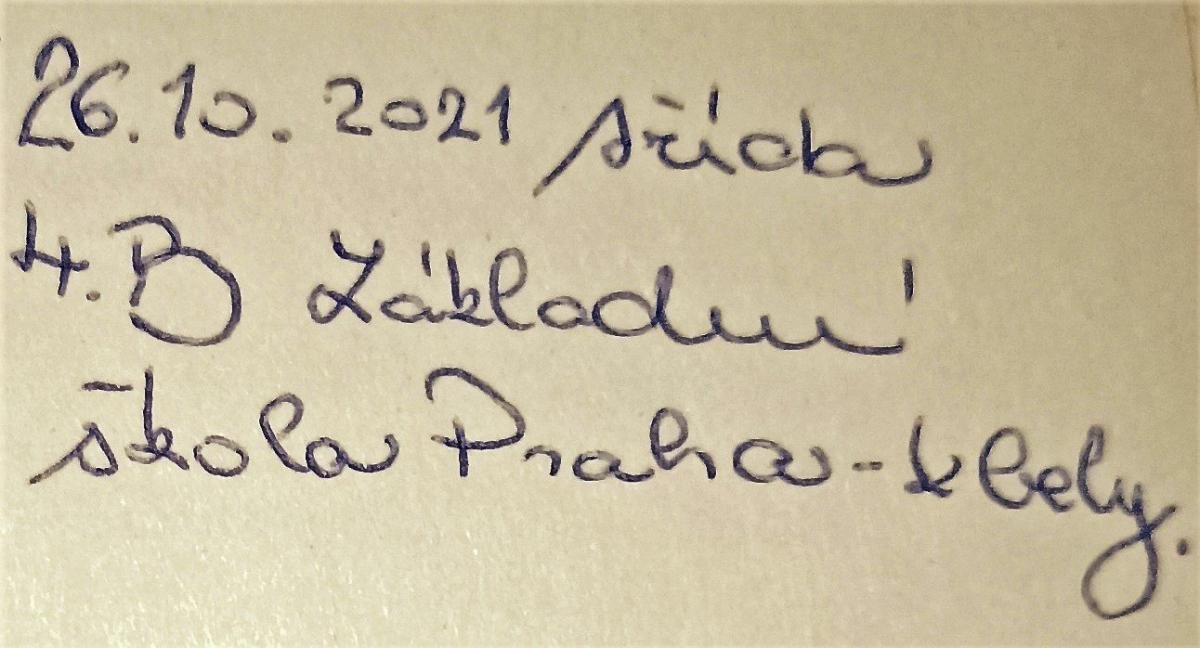 26.10.2021 sřída
4.B Základní
škola Praha-kbely.